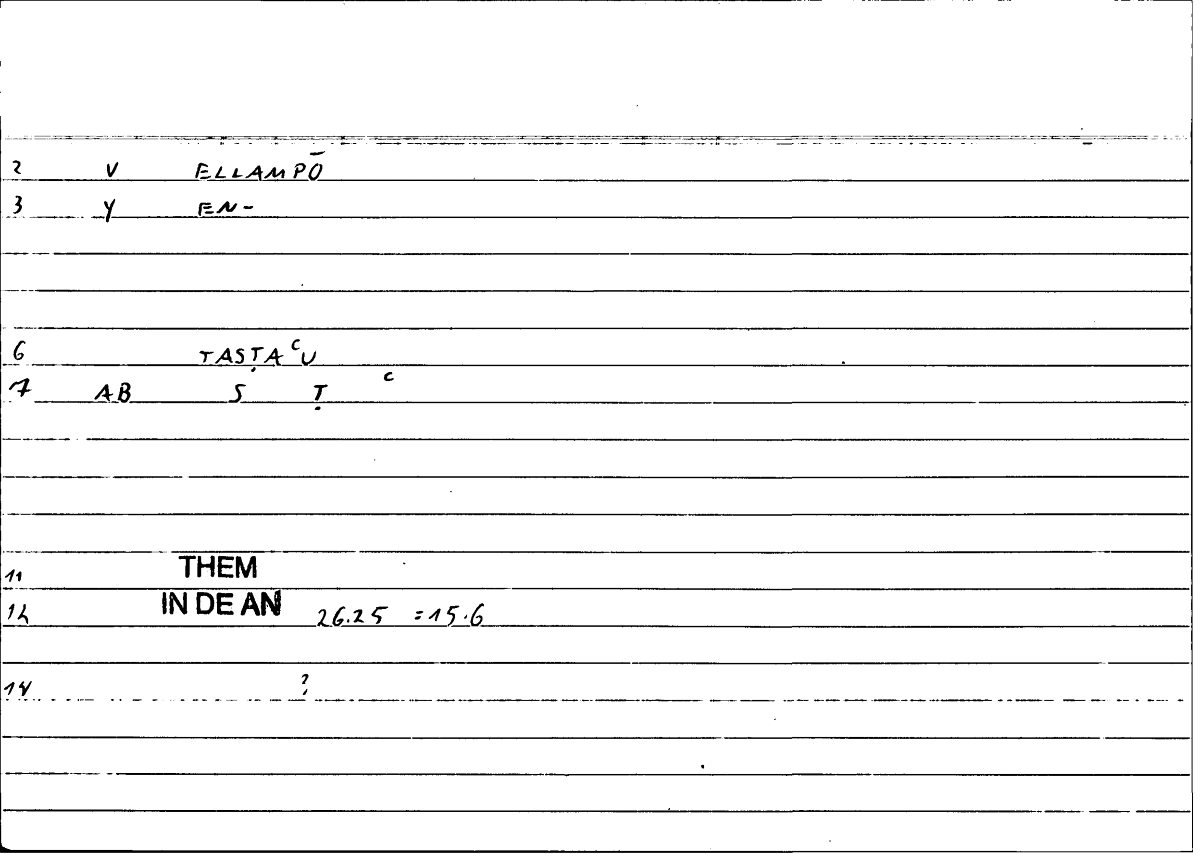 2 V ELLAMPŌ
3 Y EN-
6 TASṬAᶜU
7 AB S Ṭ ᶜ
11 THEM
12 IN DE AN 26.25 =15.6
14 ?